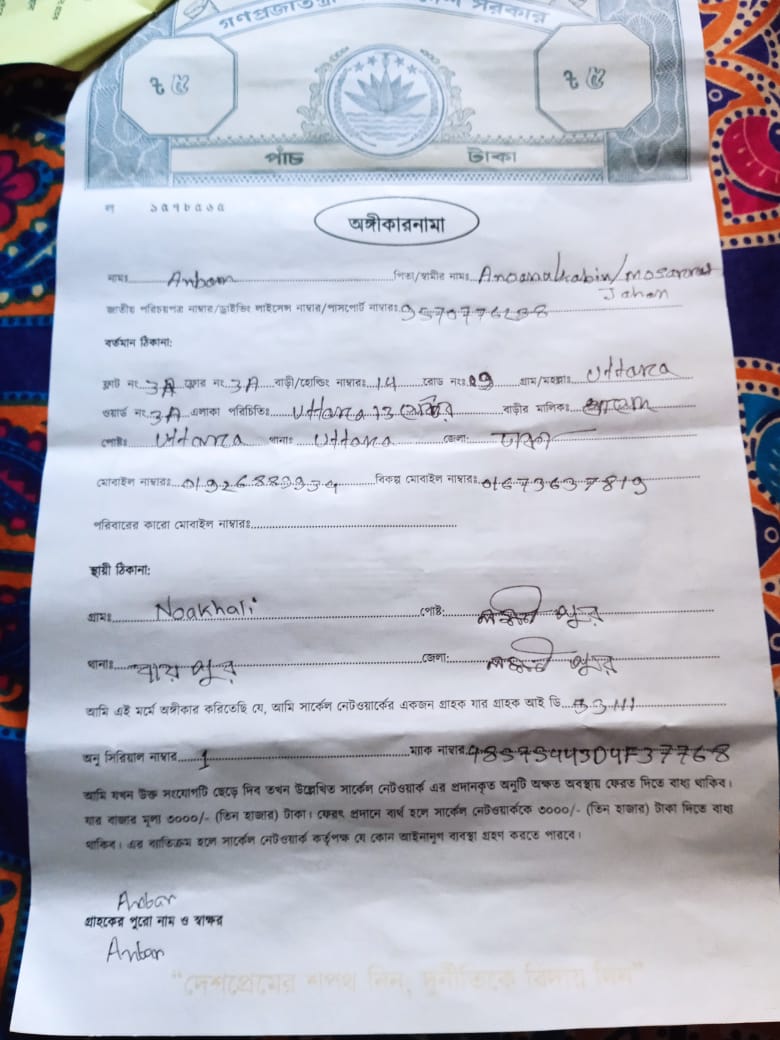 গণপ্রজাতন্ত্রী সরকার
৳ ৫ ৳ ৫
পাঁচ টাকা
অঙ্গীকারনামা
নামঃ Anbar পিতা/স্বামীর নামঃ
Jahan
জাতীয় পরিচয়পত্র নাম্বার/ড্রাইভিং লাইসেন্স নাম্বার/পাসপোর্ট নাম্বারঃ
বর্তমান ঠিকানা:
ফ্লাট নং 3A ফ্লোর নং 3A বাড়ী/হোল্ডিং নাম্বারঃ 14 রোড নংঃ 19 গ্রাম/মহল্লাঃ Uttara
ওয়ার্ড নং 3A এলাকা পরিচিতিঃ Uttara 13 সেক্টর বাড়ীর মালিকঃ
পোষ্টঃ Uttara থানাঃ Uttara জেলা: ঢাকা
মোবাইল নাম্বারঃ বিকল্প মোবাইল নাম্বারঃ 01673637819
পরিবারের কারো মোবাইল নাম্বারঃ
স্থায়ী ঠিকানা:
গ্রামঃ Noakhali পোষ্ট: লক্ষ্মী পুর
থানাঃ রায় পুর জেলা: লক্ষ্মী পুর
আমি এই মর্মে অঙ্গীকার করিতেছি যে, আমি সার্কেল নেটওয়ার্কের একজন গ্রাহক যার গ্রাহক আই ডি
অনু সিরিয়াল নাম্বার 1 ম্যাক নাম্বার 48575443D4F37768
আমি যখন উক্ত সংযোগটি ছেড়ে দিব তখন উল্লেখিত সার্কেল নেটওয়ার্ক এর প্রদানকৃত অনুটি অক্ষত অবস্থায় ফেরত দিতে বাধ্য থাকিব।
যার বাজার মূল্য ৩০০০/- (তিন হাজার) টাকা। ফেরৎ প্রদানে ব্যর্থ হলে সার্কেল নেটওয়ার্ককে ৩০০০/- (তিন হাজার) টাকা দিতে বাধ্য
থাকিব। এর ব্যতিক্রম হলে সার্কেল নেটওয়ার্ক কর্তৃপক্ষ যে কোন আইনানুগ ব্যবস্থা গ্রহণ করতে পারবে।
Anbar
গ্রাহকের পুরো নাম ও স্বাক্ষর
Anbar
“দেশপ্রেমের শপথ নিন, দুর্নীতিকে বিদায় দিন”